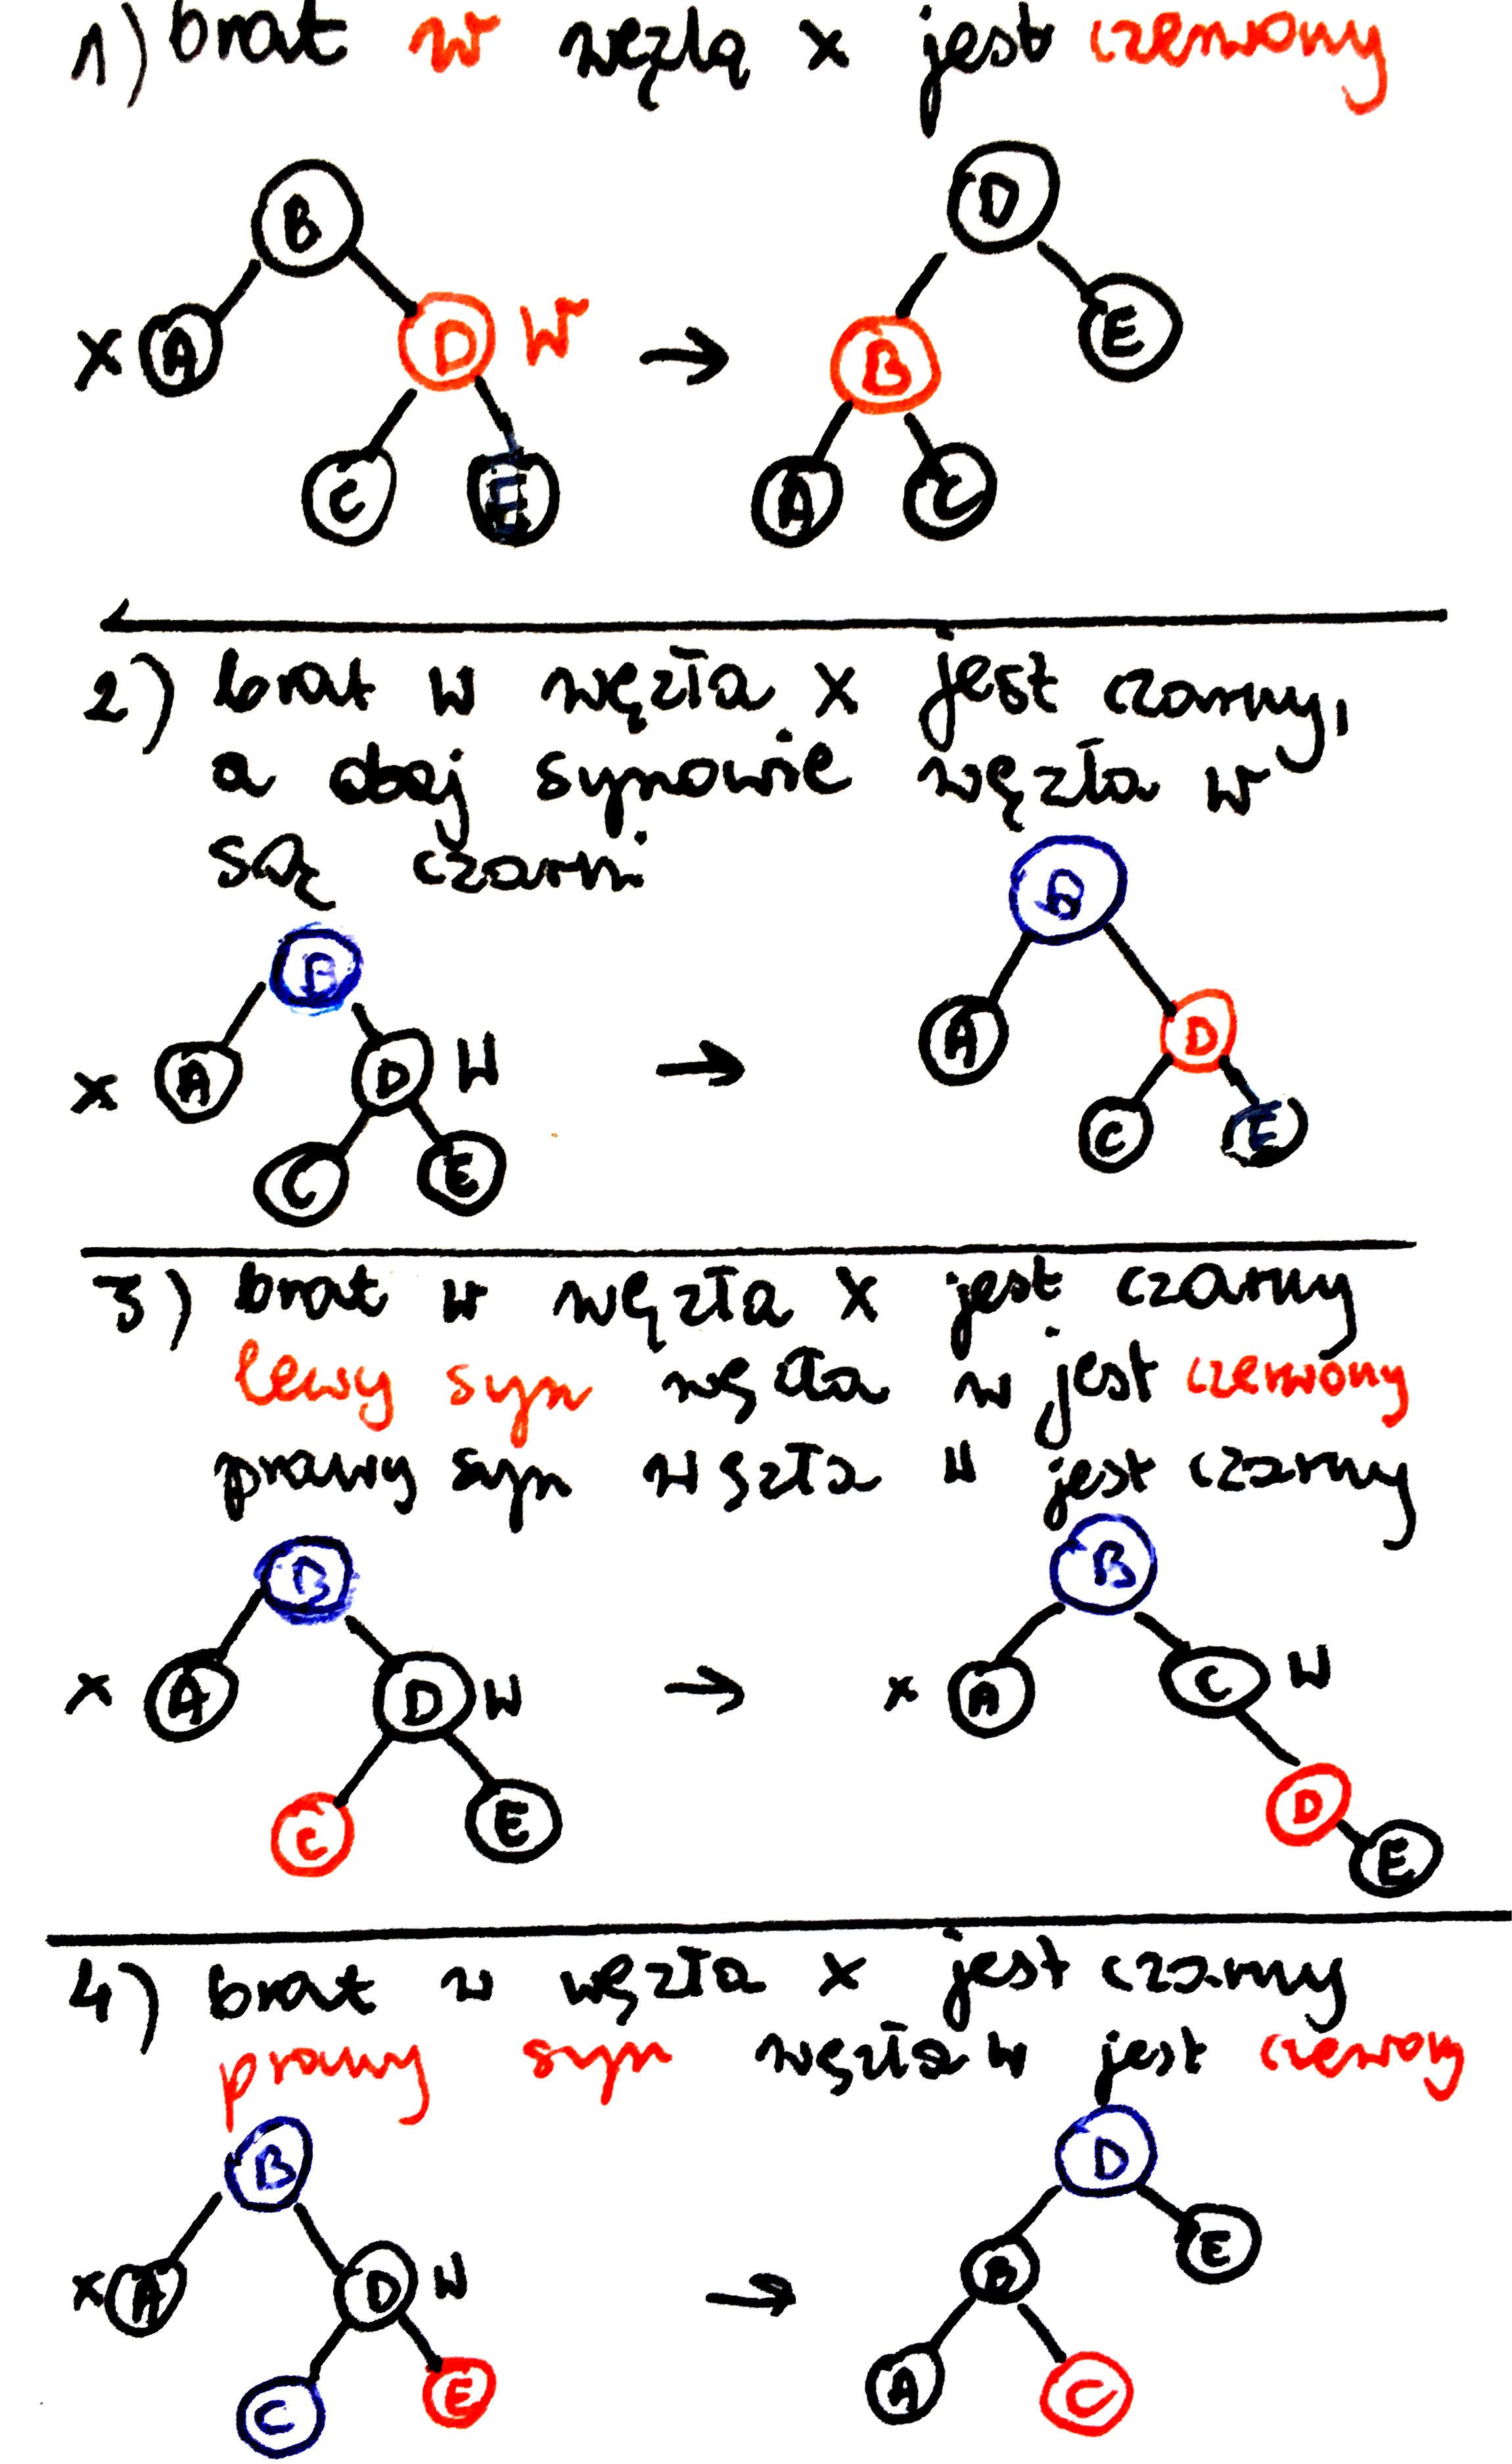 1) brat w węzlą x jest czerwony
B
D
x A
D w
B
E
C
E
A
C
2) brat w węzła x jest czarny,
a obaj synowie węzła w
są czarni
B
B
x A
D w
A
D
C
E
C
E
3) brat w węzła x jest czarny
lewy syn węzła w jest czerwony
prawy syn węzła w jest czarny
B
B
x A
D w
x A
C w
C
E
D
E
4) brat w węzła x jest czarny
prawy syn węzła w jest czerwony
B
D
x A
D w
B
E
C
E
A
C